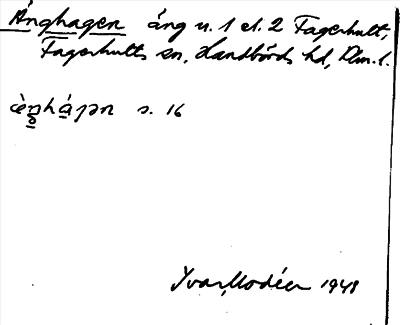 Änghagen äng u. 1 el. 2 Fagerhult,
Fagerhults sn, Handbörds hd, Klm. l.
s. 16
Yvar Modéer 1948